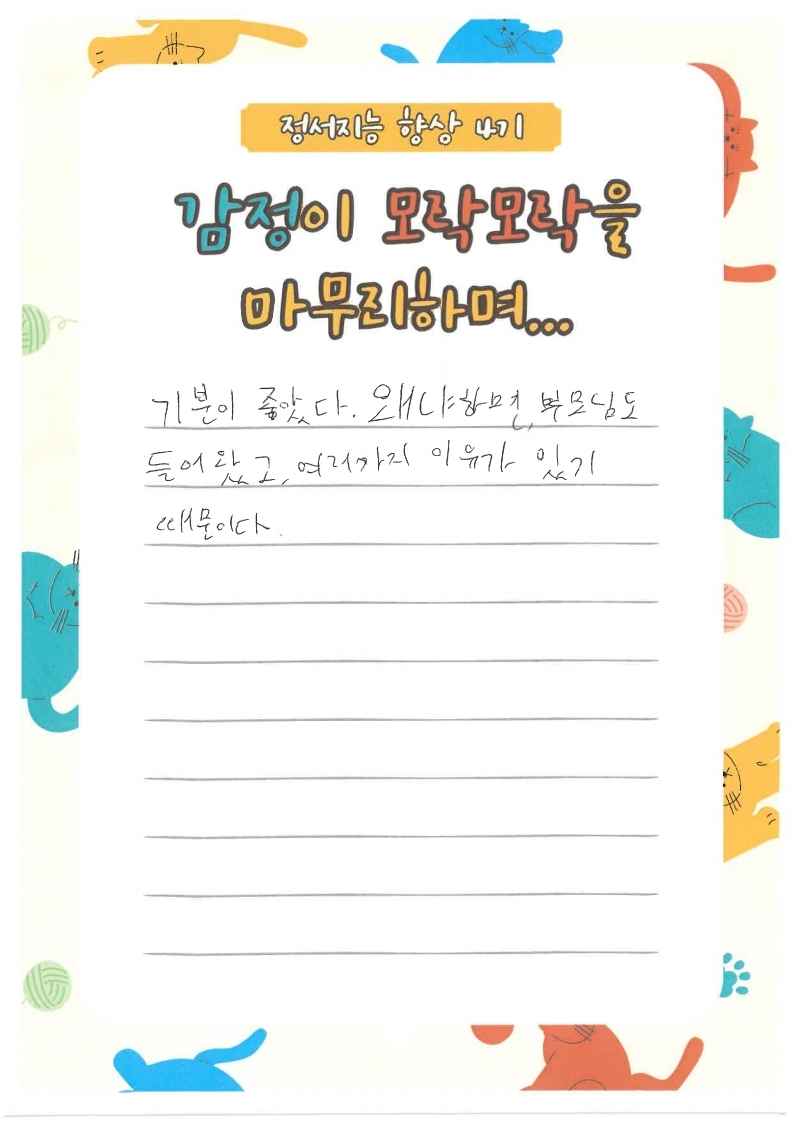 정서지능 향상 4기
감정이 모락모락을
마무리하며...
기분이 좋았다. 왜냐하면, 부모님도
들어왔고, 여러가지 이유가 있기
때문이다.